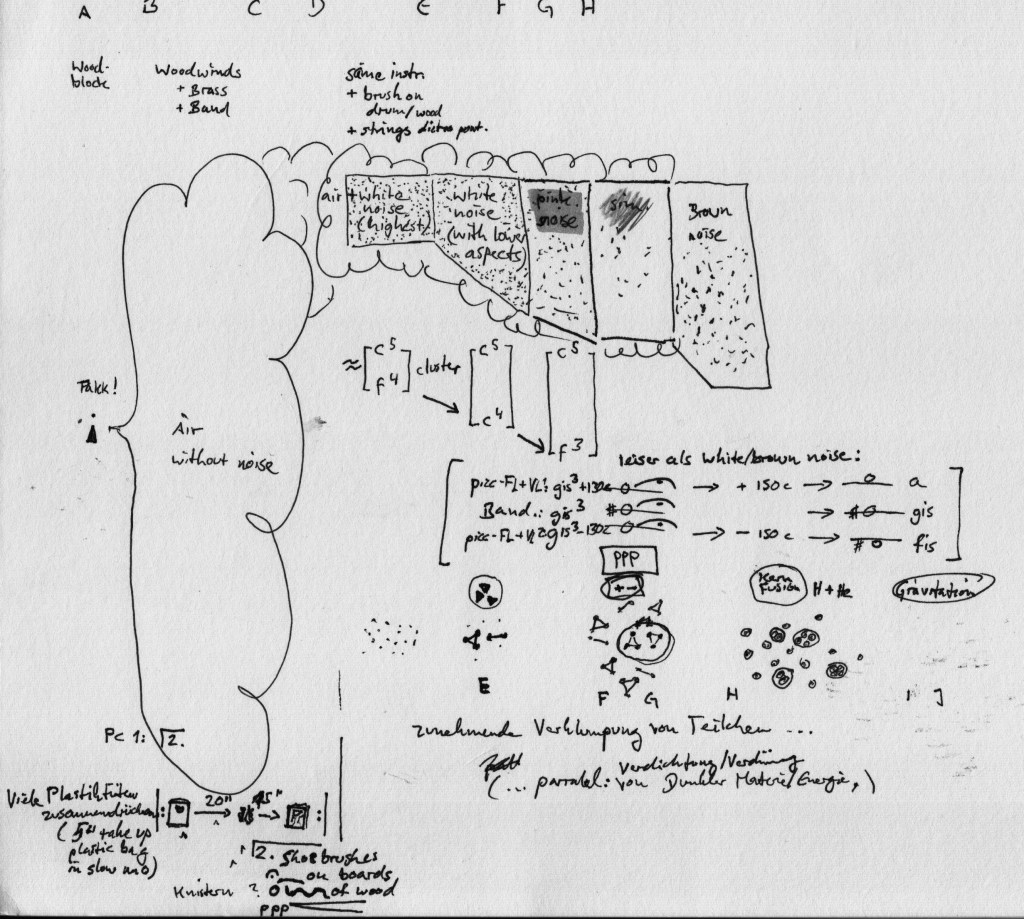 A B C D E F G H
Wood-
block
Woodwinds
+ Brass
+ Band
same instr
+ brush on
drum/wood
+ strings
air + white
noise
(highest)
white
noise
(with lower
aspects)
pink
noise
Brown
noise
≈ [c5 f4] cluster
[c5 c4]
[c5 f3]
Takk!
Air
without noise
leiser als white/brown noise:
picc-Fl+Vl: gis3 +130c → + 150c → a
Band.: gis3 → gis
picc-Fl+Vl gis3 -130c → - 150c → fis
PPP
+ -
Kern
Fusion
H + He
Gravitation
E F G H I J
zunehmende Verklumpung von Teilchen ...
Verdichtung/Verdünnung
(... parallel: von Dunkler Materie/Energie,)
Pc 1: 2.
Viele Plastiktüten
zusammendrücken
20" 45"
take up
plastic bag
in slow mo)
2. Shoebrushes
on boards
Knistern ? of wood
PPP